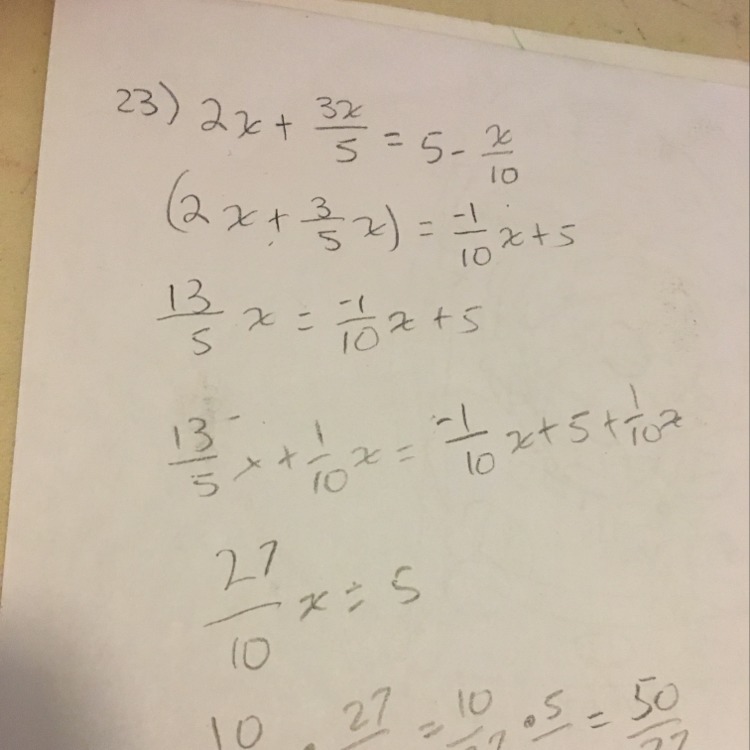 23) 2x + 3x/5 = 5 - x/10
(2x + 3/5 x) = -1/10 x + 5
13/5 x = -1/10 x + 5
13/5 x + 1/10 x = -1/10 x + 5 + 1/10 x
27/10 x = 5
10 · 27 = 10 · 5 = 50